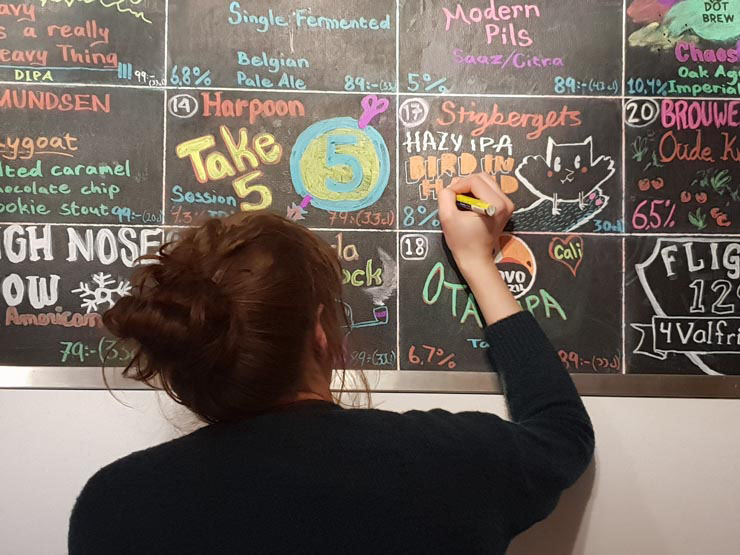 avy
s a really
eavy Thing
DIPA
99:-
Single Fermented
Belgian
Pale Ale
6,8%
89:-(33cl)
Modern
Pils
Saaz/Citra
5%
89:-(40cl)
DOT
BREW
Chaos
Oak Ag
10,4%
Imperial
MUNDSEN
ygoat
lted caramel
ocolate chip
ookie stout
99:-
14
Harpoon
Take
5
5
Session
4,3%
79:-(33cl)
17
Stigbergets
HAZY IPA
BIRD IN
8%
30cl
20
BROUWE
Oude K
6,5%
GH NOSE
OW
American
79:-(33
la
ock
99:-(33cl)
18
Cali
OTA
PA
6,7%
89:-(33cl)
FLIG
12
4 Valfri